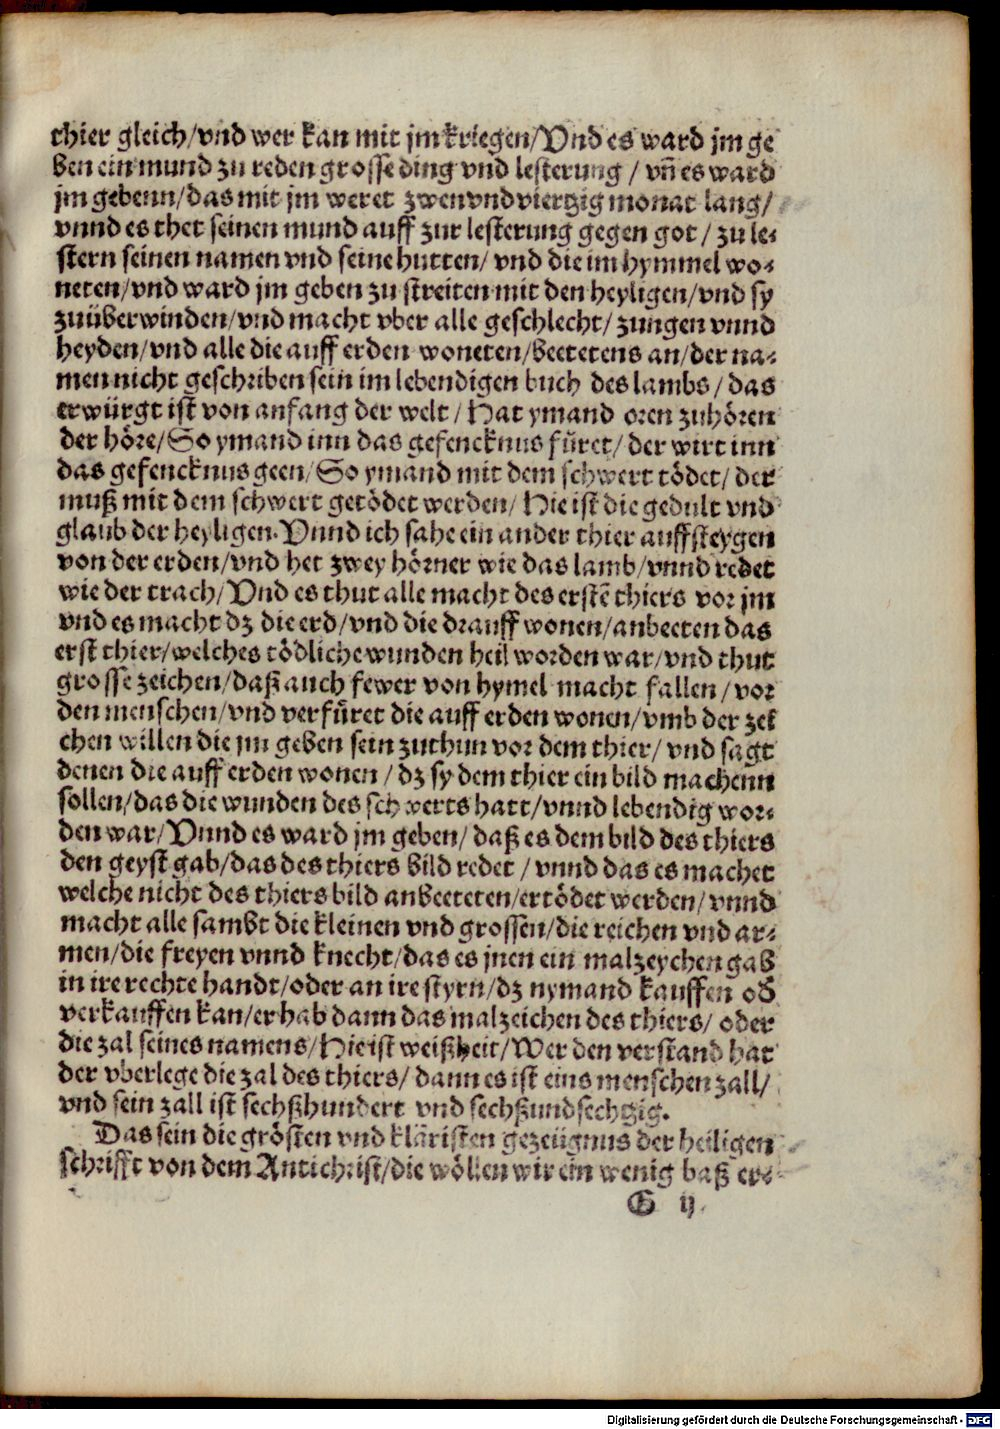 thier gleich/vnd wer kan mit jm kriegen/Vnd es ward jm ge
ben ein mund zu reden grosse ding vnd lesterung / vn̄ es ward
jm gebenn/das mit jm weret zwen vnd viertzig monat lang/
vnnd es thet seinen mund auff zur lesterung gegen got / zu le⸗
stern seinen namen vnd seine hutten/ vnd die im hymmel wo⸗
neten/vnd ward jm geben zu streiten mit den heyligen/vnd sy
zuüberwinden/vnd macht vber alle geschlecht/ zungen vnnd
heyden/vnd alle die auff erden woneten/beetetens an/der na⸗
men nicht geschriben sein im lebendigen buch des lambs/ das
erwürgt ist von anfang der welt/Hat ymand oren zuhören
der höre/So ymand inn das gefencknus füret/ der wirt inn
das gefencknus geen/So ymand mit dem schwert tödet/ der
muß mit dem schwert getödet werden/Hie ist die gedult vnd
glaub der heyligen. Vnnd ich sahe ein ander thier auffsteygen
von der erden/vnd het zwey hörner wie das lamb/vnnd redet
wie der trach/Vnd es thut alle macht des erstē thiers vor jm
vnd es macht dz die erd/vnd die drauff wonen/anbeeten das
erst thier/welches tödliche wunden heil worden war/vnd thut
grosse zeichen/daß auch fewer von hymel macht fallen/vor
den menschen/vnd verfüret die auff erden wonen/vmb der zei
chen willen die jm geben sein zuthun vor dem thier/ vnd sagt
denen die auff erden wonen / dz sy dem thier ein bild machenn
sollen/das die wunden des schwerts hatt/vnnd lebendig wor⸗
den war/Vnnd es ward jm geben/ daß es dem bild des thiers
den geyst gab/das des thiers bild redet / vnnd das es machet
welche nicht des thiers bild anbeeteten/ertödet werden/vnnd
macht alle sambt die kleinen vnd grossen/die reichen vnd ar⸗
men/die freyen vnnd knecht/das es jnen ein malzeychen gab
in ire rechte handt/oder an ire styrn/dz nymand kauffen od
verkauffen kan/er hab dann das malzeichen des thiers/ oder
die zal seines namens/Hie ist weißheit/Wer den verstand hat
der vberlege die zal des thiers/ dann es ist eins menschen zall/
vnd sein zall ist sechßhundert vnd sechßundsechtzig.
Das sein die grösten vnd kläristen gezeügnus der heiligen
schrifft von dem Antichrist/die wöllen wir ein wenig baß er⸗
G ij
Digitalisierung gefördert durch die Deutsche Forschungsgemeinschaft - DFG